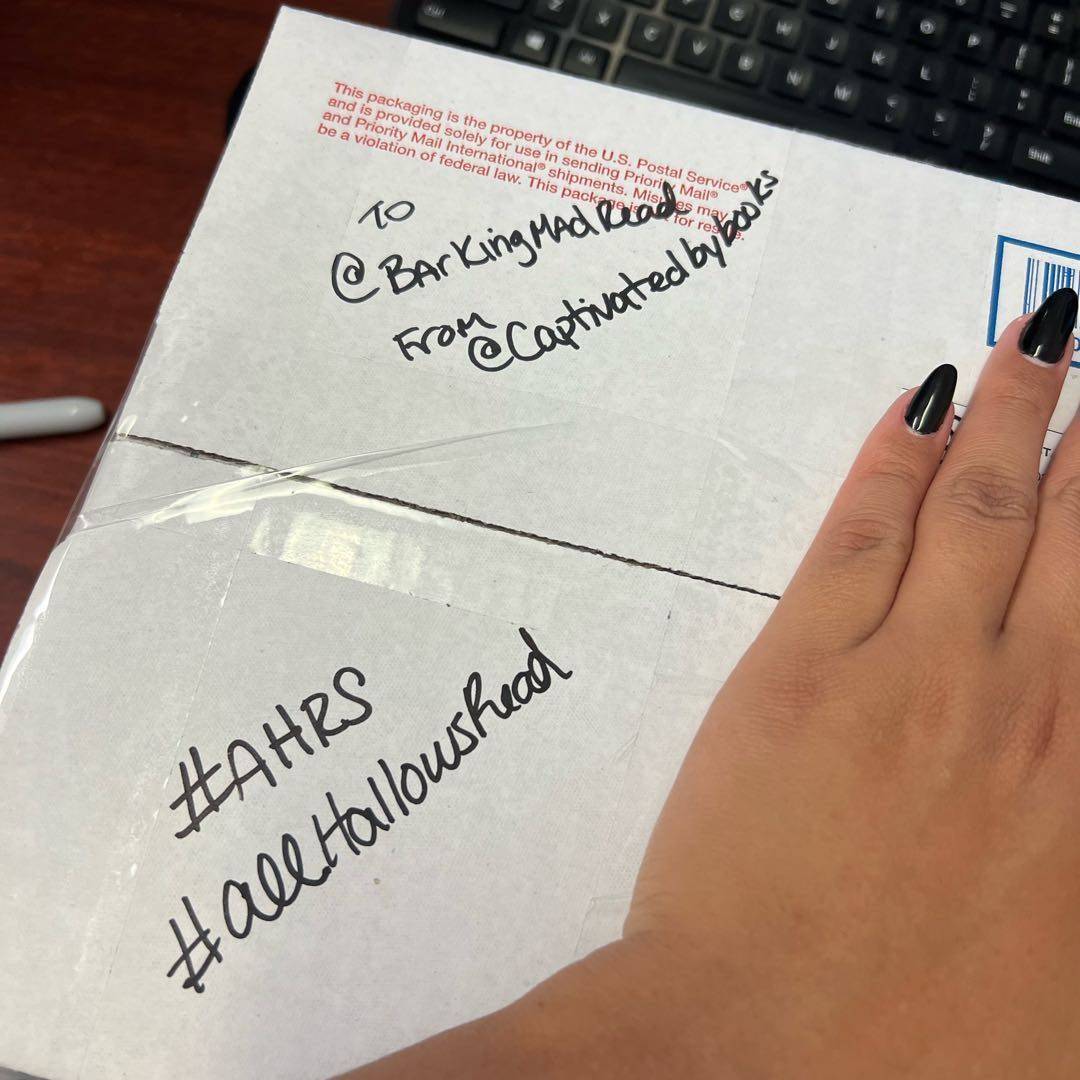 This packaging is the property of the U.S. Postal Service®
and is provided solely for use in sending Priority Mail®
and Priority Mail International® shipments. Misuses may
be a violation of federal law. This package is not for resale.
TO
@BarkingMadRead
From
@Captivatedbybooks
#AHRS
#allHallowsRead